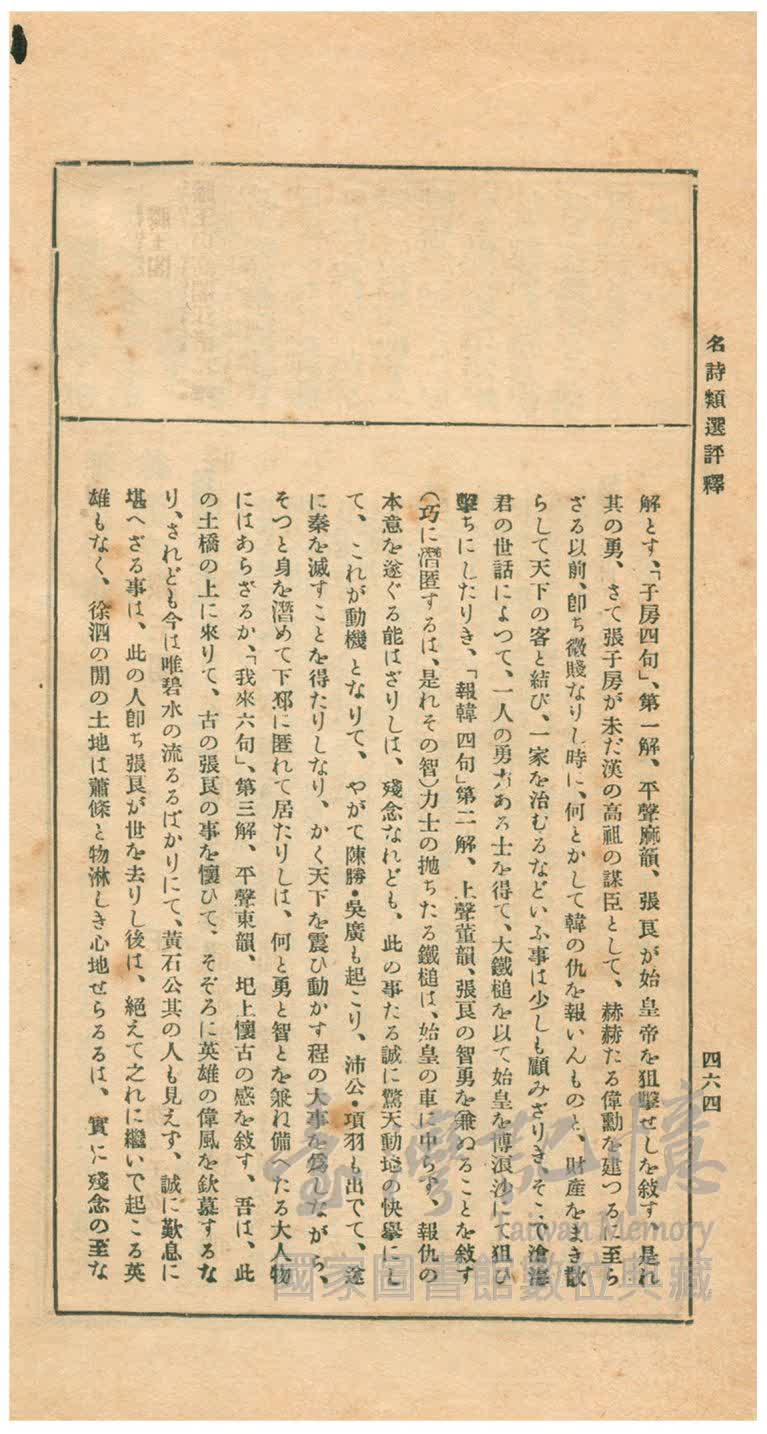 名詩類選評釋
四六四
解とす、「子房四句」、第一解、平聲麻韻、張良が始皇帝を狙擊せしを敍す、是れ
其の勇、さて張子房が未だ漢の高祖の謀臣として、赫赫たる偉勳を建つるに至ら
ざる以前、卽ち微賤なりし時に、何とかして韓の仇を報いんものと、財產をまき散
らして天下の客と結び、一家を治むるなどいふ事は少しも顧みざりき、そこで滄海
君の世話によつて、一人の勇力ある士を得て、大鐵槌を以て始皇を博浪沙にて狙ひ
擊ちにしたりき、「報韓四句」第二解、上聲董韻、張良の智勇を兼ぬることを敍す
(巧に潛匿するは、是れその智)力士の抛ちたる鐵槌は、始皇の車に中らず、報仇の
本意を遂ぐる能はざりしは、殘念なれども、此の事たる誠に驚天動地の快擧にし
て、これが動機となりて、やがて陳勝・吳廣も起こり、沛公・項羽も出でて、遂
に秦を滅すことを得たりしなり、かく天下を震ひ動かす程の大事を爲しながら、
そつと身を潛めて下邳に匿れて居たりしは、何と勇と智とを兼ね備へたる大人物
にはあらざるか、「我來六句」、第三解、平聲東韻、圯上懷古の感を敍す、吾は、此
の土橋の上に來りて、古の張良の事を懷ひて、そぞろに英雄の偉風を欽慕するな
り、されども今は唯碧水の流るるばかりにて、黃石公其の人も見えず、誠に歎息に
堪へざる事は、此の人卽ち張良が世を去りし後は、絕えて之れに繼いで起こる英
雄もなく、徐泗の閒の土地は蕭條と物淋しき心地せらるるは、實に殘念の至な
臺灣記憶
Taiwan Memory
國家圖書館數位典藏